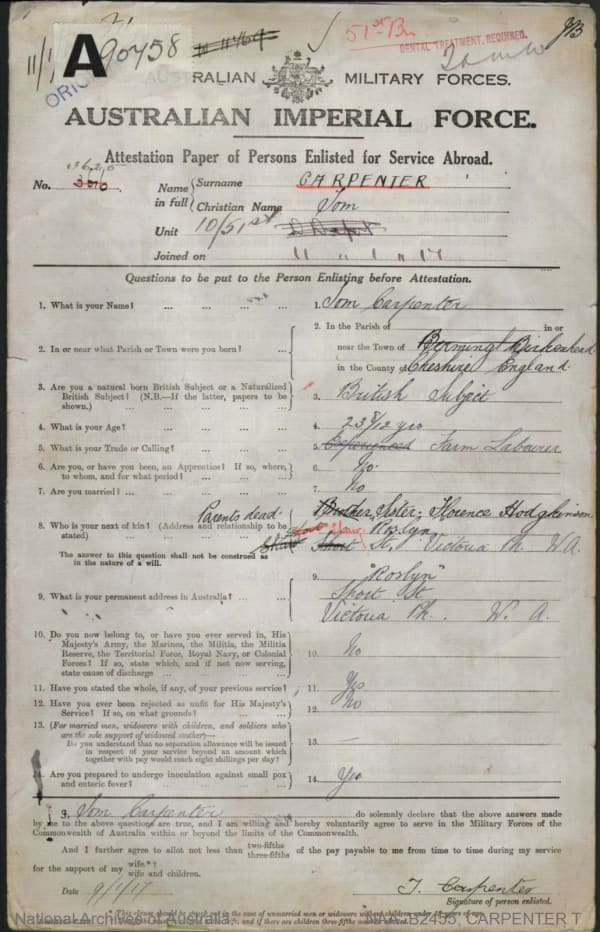 51st Bn
DENTAL TREATMENT REQUIRED.
A 90758
ORIG
RALIAN MILITARY FORCES.
AUSTRALIAN IMPERIAL FORCE.
Attestation Paper of Persons Enlisted for Service Abroad.
No.
Name in full
Surname CARPENTER
Christian Name Tom
Unit 10/51st D Depot
Joined on 11 " 1 " 17
Questions to be put to the Person Enlisting before Attestation.
1. What is your Name? ... ... ... ... 1. Tom Carpenter
2. In or near what Parish or Town were you born? ... 2. In the Parish of in or
near the Town of Birkenhead
in the County of Cheshire England.
3. Are you a natural born British Subject or a Naturalized
British Subject? (N.B.—If the latter, papers to be
shown.) ... 3. British Subject
4. What is your Age? ... ... ... ... 4. 23 8/12 yrs
5. What is your Trade or Calling? ... ... ... 5. Experienced Farm Labourer
6. Are you, or have you been, an Apprentice? If so, where,
to whom, and for what period? ... ... 6. No.
7. Are you married? ... ... ... ... 7. No
8. Who is your next of kin? (Address and relationship to be
stated) Parents dead. Brother Sister: Florence Hodgkinson
Roslyn
8. Short St, Victoria Pk. W.A.
The answer to this question shall not be construed as
in the nature of a will.
9. What is your permanent address in Australia? ... ... 9. "Roslyn"
Short St
Victoria Pk. W. A.
10. Do you now belong to, or have you ever served in, His
Majesty's Army, the Marines, the Militia, the Militia
Reserve, the Territorial Force, Royal Navy, or Colonial
Forces? If so, state which, and if not now serving,
state cause of discharge ... ... ... 10. No
11. Have you stated the whole, if any, of your previous service? 11. Yes
12. Have you ever been rejected as unfit for His Majesty's
Service? If so, on what grounds? ... ... 12. No
13. (For married men, widowers with children, and soldiers who
are the sole support of widowed mother)—
Do you understand that no separation allowance will be issued
in respect of your service beyond an amount which
together with pay would reach eight shillings per day? 13. —
14. Are you prepared to undergo inoculation against small pox
and enteric fever? ... ... ... ... 14. Yes
I, Tom Carpenter do solemnly declare that the above answers made
by me to the above questions are true, and I am willing and hereby voluntarily agree to serve in the Military Forces of the
Commonwealth of Australia within or beyond the limits of the Commonwealth.
And I further agree to allot not less than two-fifths three-fifths of the pay payable to me from time to time during my service
for the support of my wife.*† wife and children.
Date 9/1/17 T. Carpenter
Signature of person enlisted.
National Archives of Australia NAA: B2455, CARPENTER T